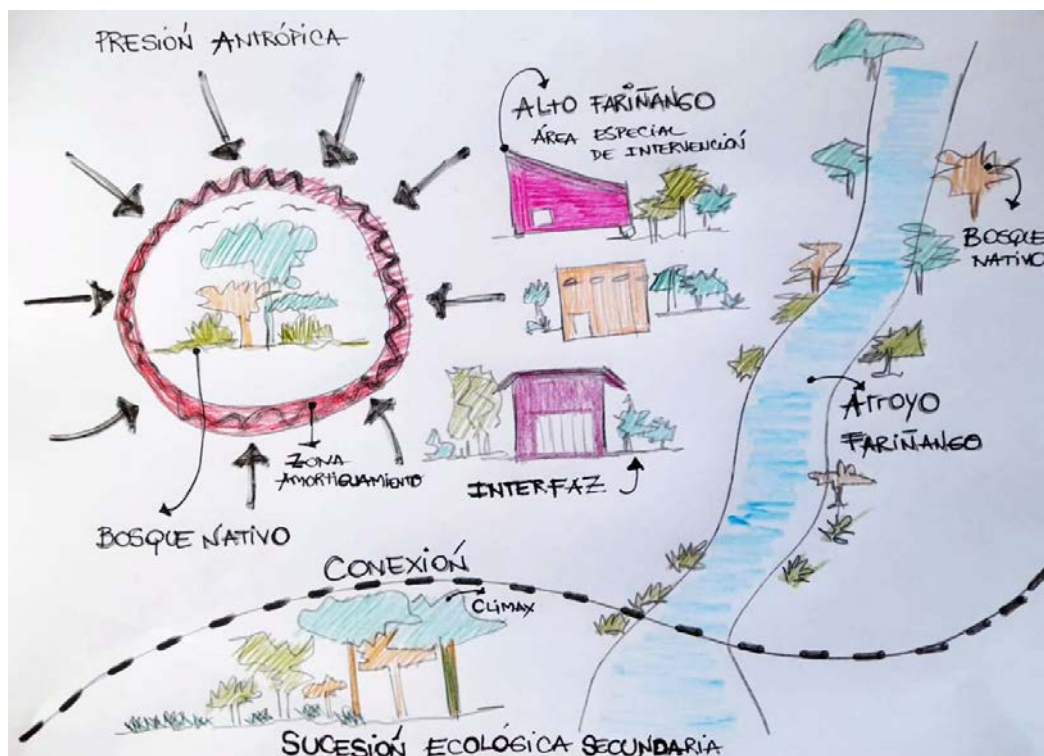 PRESIÓN ANTRÓPICA
ALTO FARIÑANGO
ÁREA ESPECIAL
DE INTERVENCIÓN
BOSQUE
NATIVO
ARROYO
FARIÑANGO
ZONA
AMORTIGUAMIENTO
INTERFAZ
BOSQUE NATIVO
CONEXIÓN
CLÍMAX
SUCESIÓN ECOLÓGICA SECUNDARIA